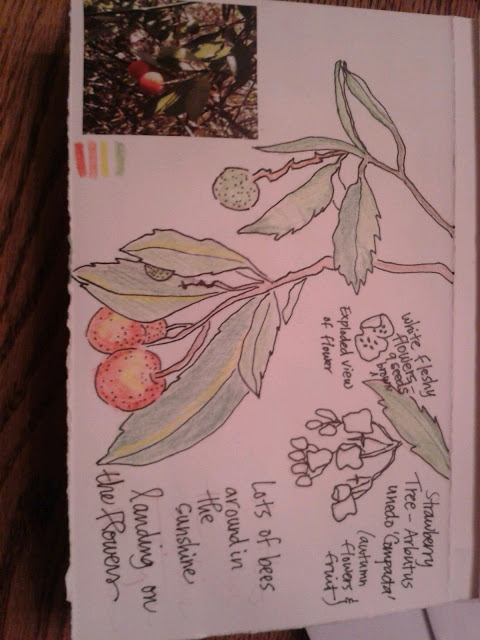 Strawberry
Tree - Arbutus
unedo 'Compacta'
(autumn
flowers &
fruit)
White fleshy
flowers -
9 seeds
brown
Exploded view
of flower
Lots of bees
around in
the
sunshine
landing on
the flowers